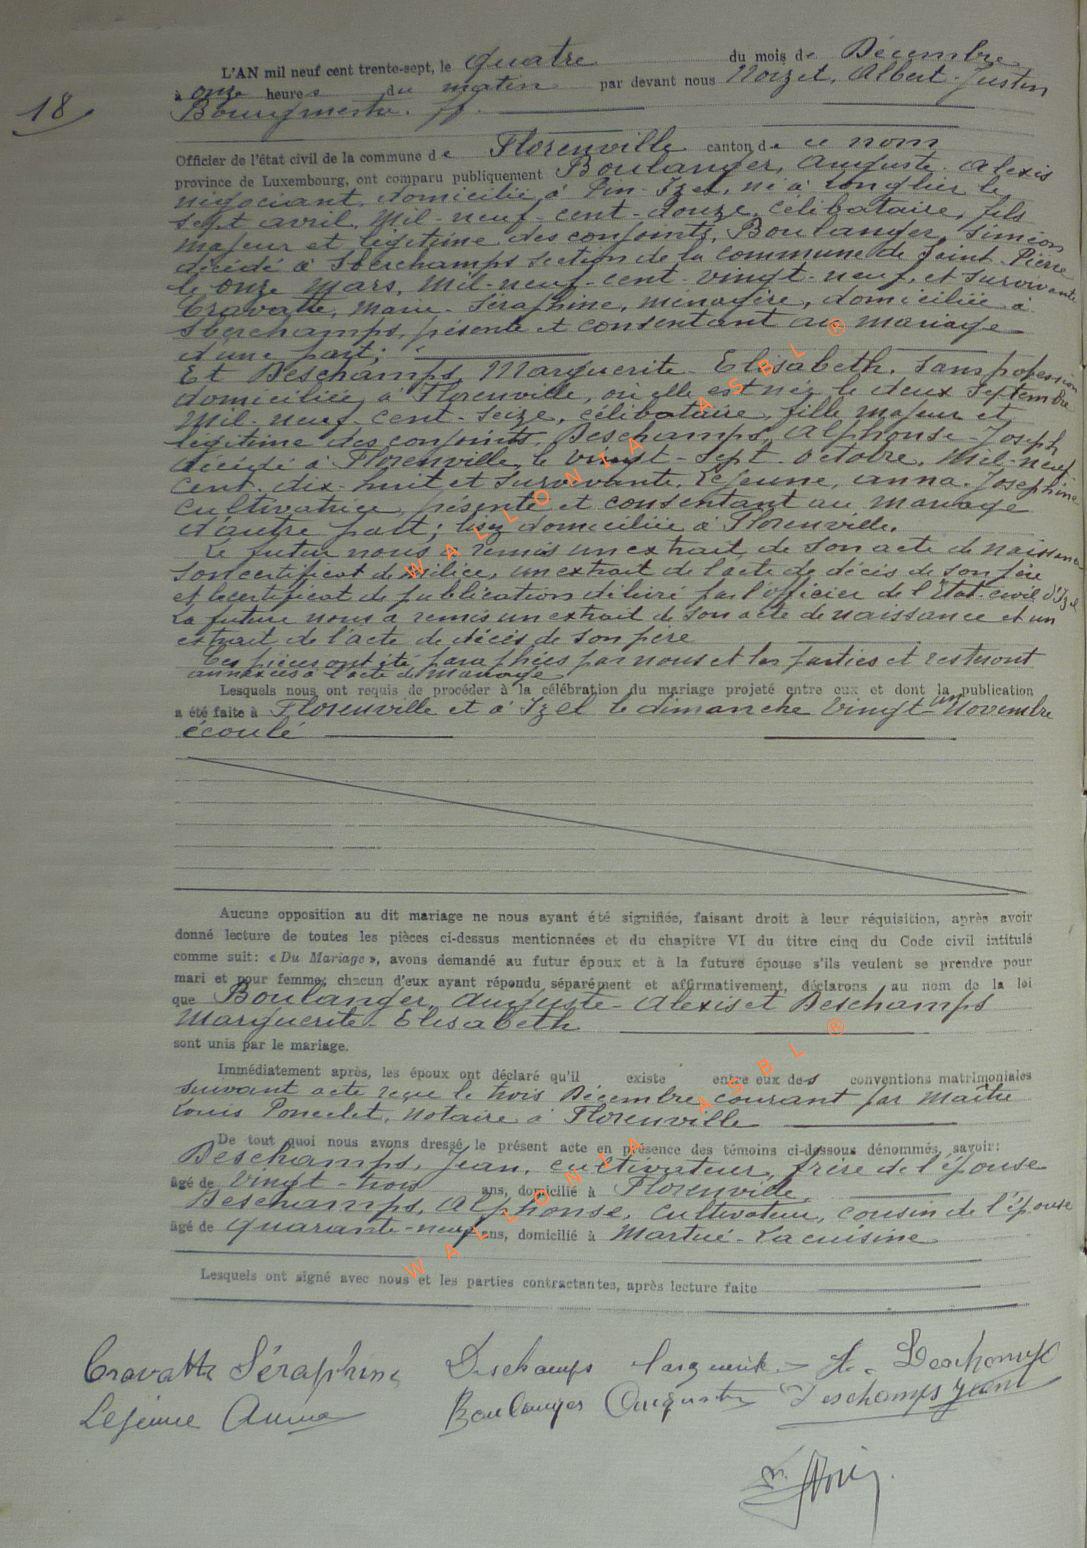 18
L'AN mil neuf cent trente-sept, le quatre du mois de Décembre
à onze heures du matin par devant nous Noizet, Albert-Justin
Bourgmestre. ff.
Officier de l'état civil de la commune de Florenville canton de ce nom
province de Luxembourg, ont comparu publiquement Boulanger, Auguste-Alexis
négociant, domicilié à Pin-Izel, né à Longlier le
sept avril, Mil-neuf-cent-douze, célibataire, fils
majeur et légitime des conjoints, Boulanger, Siméon
décédé à Sberchamps section de la commune de Saint-Pierre
le onze Mars, Mil-neuf-cent-vingt-neuf, et survivante
Cravatte, Marie-Séraphine, ménagère, domiciliée à
Sberchamps, présente et consentant au mariage
d'une part;
Et Deschamps Marguerite-Elisabeth, sans profession
domiciliée à Florenville, où elle est née le deux Septembre
Mil-neuf-cent-seize, célibataire, fille majeur et
légitime des conjoints, Deschamps, Alphonse-Joseph
décédé à Florenville le vingt-sept octobre, Mil-neuf
cent-dix-huit et survivante, Lejeune, Anna-Joséphine
Cultivatrice, présente et consentant au mariage
d'autre part; lisez domiciliée à Florenville.
Le futur nous a remis un extrait de son acte de naissance
son certificat de milice, un extrait de l'acte de décès de son père
et le certificat de publication délivré par l'officier de l'Etat-civil d'Izel
La future nous a remis un extrait de son acte de naissance et un
extrait de l'acte de décès de son père
Ces pièces ont été paraphées par nous et les parties et resteront
annexées à l'acte de mariage
Lesquels nous ont requis de procéder à la célébration du mariage projeté entre eux et dont la publication
a été faite à Florenville et à Izel le dimanche vingt-un Novembre
écoulé
Aucune opposition au dit mariage ne nous ayant été signifiée, faisant droit à leur réquisition, après avoir
donné lecture de toutes les pièces ci-dessus mentionnées et du chapitre VI du titre cinq du Code civil intitulé
comme suit: « Du Mariage », avons demandé au futur époux et à la future épouse s'ils veulent se prendre pour
mari et pour femme; chacun d'eux ayant répondu séparément et affirmativement, déclarons au nom de la loi
que Boulanger, Auguste-Alexis et Deschamps
Marguerite-Elisabeth
sont unis par le mariage.
Immédiatement après, les époux ont déclaré qu'il existe entre eux des conventions matrimoniales
suivant acte reçu le trois Décembre courant par Maître
Louis Poncelet, Notaire à Florenville
De tout quoi nous avons dressé le présent acte en présence des témoins ci-dessous dénommés, savoir:
Deschamps, Jean, cultivateur, frère de l'épouse
âgé de vingt-trois ans, domicilié à Florenville.
Deschamps, Alphonse, cultivateur, cousin de l'épouse
âgé de quarante-neuf ans, domicilié à Martué-Lacuisine
Lesquels ont signé avec nous et les parties contractantes, après lecture faite
Cravatte Séraphine Deschamps Marguerite A. Deschamps
Lejeune Anna Boulanger Auguste Deschamps Jean
WALLONIA ASBL ®
WALLONIA ASBL ®